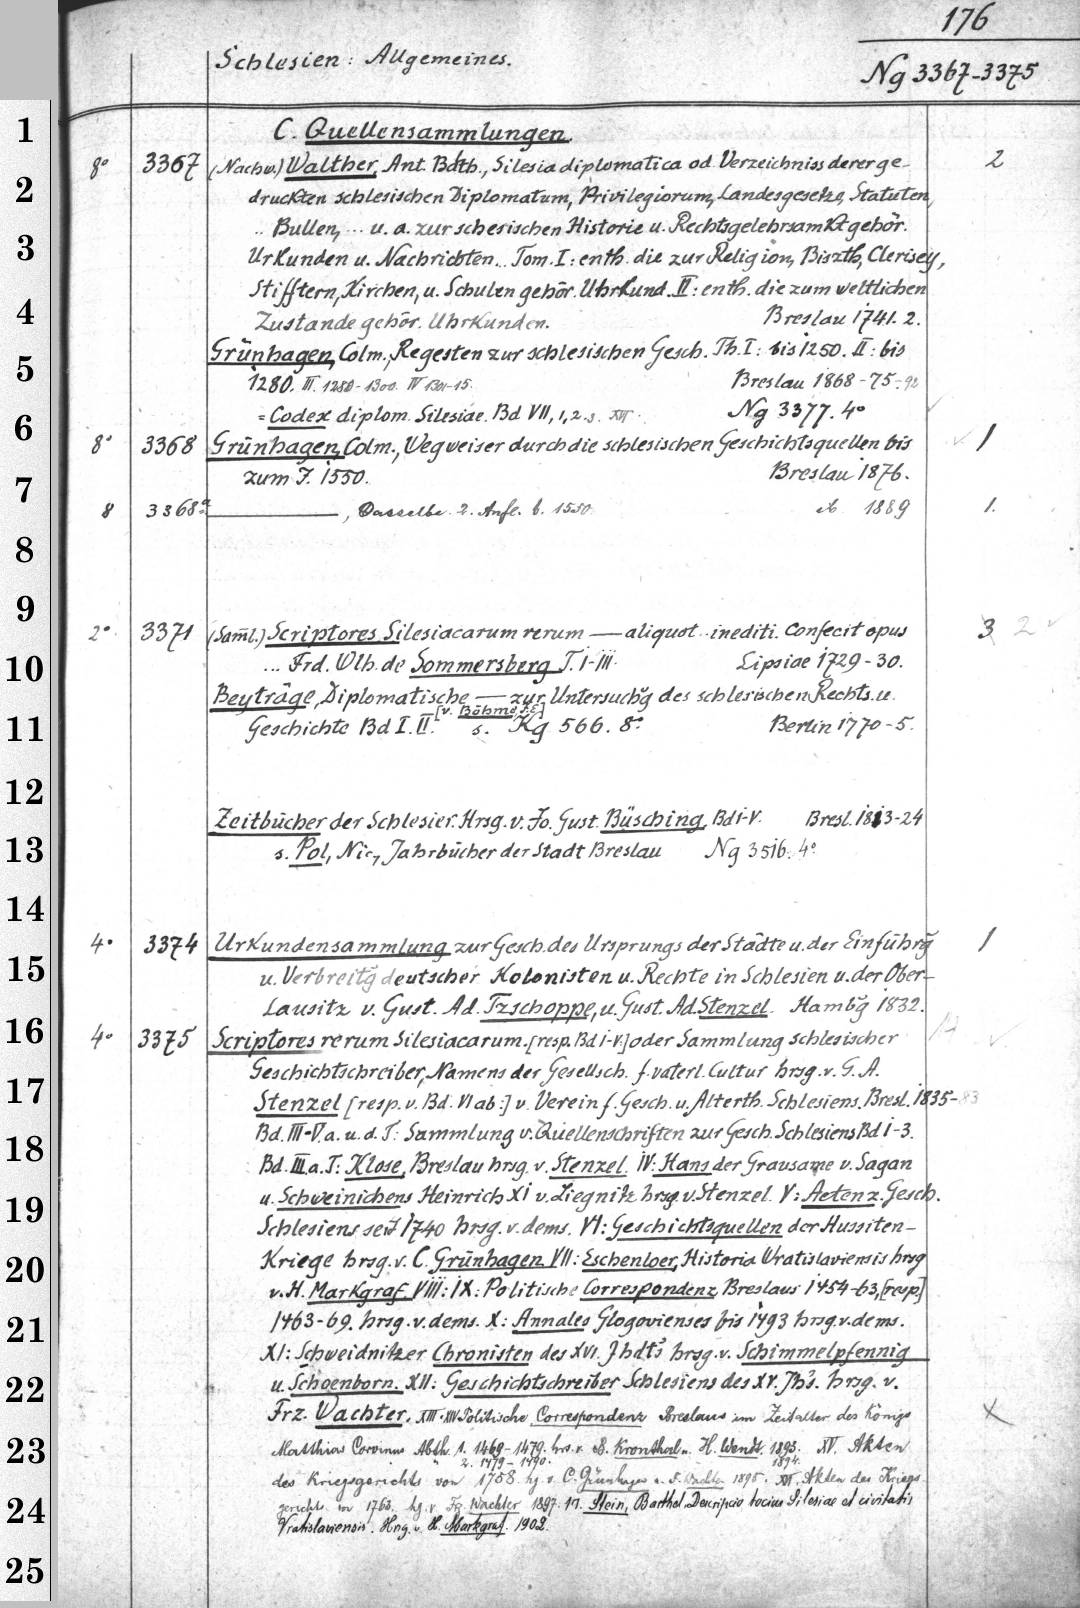 176
Schlesien: Allgemeines.
Ng 3367-3375
1
C. Quellensammlungen.
8° 3367 (Nachw.) Walther, Ant. Bdth., Silesia diplomatica od. Verzeichniss derer ge- 2
2
druckten schlesischen Diplomatum, Privilegiorum, Landesgesetze, Statuten,
.. Bullen, ... u. a. zur schesischen Historie u. Rechtsgelehrsamkt gehör.
3
Urkunden u. Nachrichten.. Tom. I: enth. die zur Religion, Biszth, Clerisey,
Stifftern, Kirchen, u. Schulen gehör. Uhrkund. II: enth. die zum weltlichen
4
Zustande gehör. Uhrkunden. Breslau 1741. 2.
Grünhagen, Colm., Regesten zur schlesischen Gesch. Th. I: bis 1250. II: bis
5
1280. III. 1280-1300. IV 1301-15. Breslau 1868-75-92
= Codex diplom. Silesiae. Bd VII, 1, 2. 3. XVI. Ng 3377. 4°
6
8° 3368 Grünhagen, Colm., Wegweiser durch die schlesischen Geschichtsquellen bis 1
zum J. 1550. Breslau 1876.
7
8 3368a ———, Dasselbe. 2. Aufl. b. 1550. eb. 1889 1.
8
9
2° 3371 (Saml.) Scriptores Silesiacarum rerum — aliquot.. inediti. Confecit opus 3 2
10
... Frd. Wlh. de Sommersberg T. I-III. Lipsiae 1729-30.
Beyträge, Diplomatische — zur Untersuchg des schlesischen Rechts u.
[v. Böhme, J. E.]
11
Geschichte Bd I. II. s. Kg 566. 8° Berlin 1770-5.
12
Zeitbücher der Schlesier. Hrsg. v. Jo. Gust. Büsching, Bd I-V. Bresl. 1813-24
13
s. Pol, Nic, Jahrbücher der Stadt Breslau Ng 3516. 4°
14
4° 3374 Urkundensammlung zur Gesch. des Ursprungs der Städte u. der Einführg 1
15
u. Verbreitg deutscher Kolonisten u. Rechte in Schlesien u. der Ober-
Lausitz v. Gust. Ad. Tzschoppe, u. Gust. Ad. Stenzel. Hambg 1832.
16
4° 3375 Scriptores rerum Silesiacarum. [resp. Bd I-V:] oder Sammlung schlesischer
Geschichtschreiber, Namens der Gesellsch. f. vaterl. Cultur hrsg. v. G. A.
17
Stenzel [resp. v. Bd. VI ab:] v. Verein f. Gesch. u. Alterth. Schlesiens. Bresl. 1835-83
Bd. III-V. a. u. d. T: Sammlung v. Quellenschriften zur Gesch. Schlesiens Bd 1-3.
18
Bd. III a. T: Klose, Breslau hrsg. v. Stenzel. IV: Hans der Grausame v. Sagan
u. Schweinichens Heinrich XI v. Liegnitz hrsg. v. Stenzel. V: Actenz. Gesch.
19
Schlesiens seit 1740 hrsg. v. dems. VI: Geschichtsquellen der Hussiten-
20
Kriege hrsg. v. C. Grünhagen VII: Eschenloer, Historia Wratislaviensis hrsg
v. H. Markgraf. VIII: IX: Politische Correspondenz Breslaus 1454-63, [resp.]
21
1463-69. hrsg. v. dems. X: Annales Glogovienses bis 1493 hrsg. v. dems.
XI: Schweidnitzer Chronisten des XVI. Jhdts hrsg. v. Schimmelpfennig
22
u. Schoenborn. XII: Geschichtschreiber Schlesiens des XV. Jhs. hrsg. v.
Frz. Wachter. XIII-XIV Politische Correspondenz Breslaus im Zeitalter des Königs
23
Matthias Corvinus Abth. 1. 1469-1479. hrs. v. B. Kronthal u. H. Wendt. 1893. XV. Akten
2. 1479-1490. 1894.
des Kriegsgerichts von 1758. hg. v. C. Grünhagen u. F. Wachter 1895. XVI. Akten des Kriegs-
24
gerichts von 1763. hg. v. Fz. Wachter 1897. 17. Stein, Barthol. Descripcio tocius Silesiae et civitatis
Vratislaviensis. Hrsg. v. H. Markgraf. 1902.
25